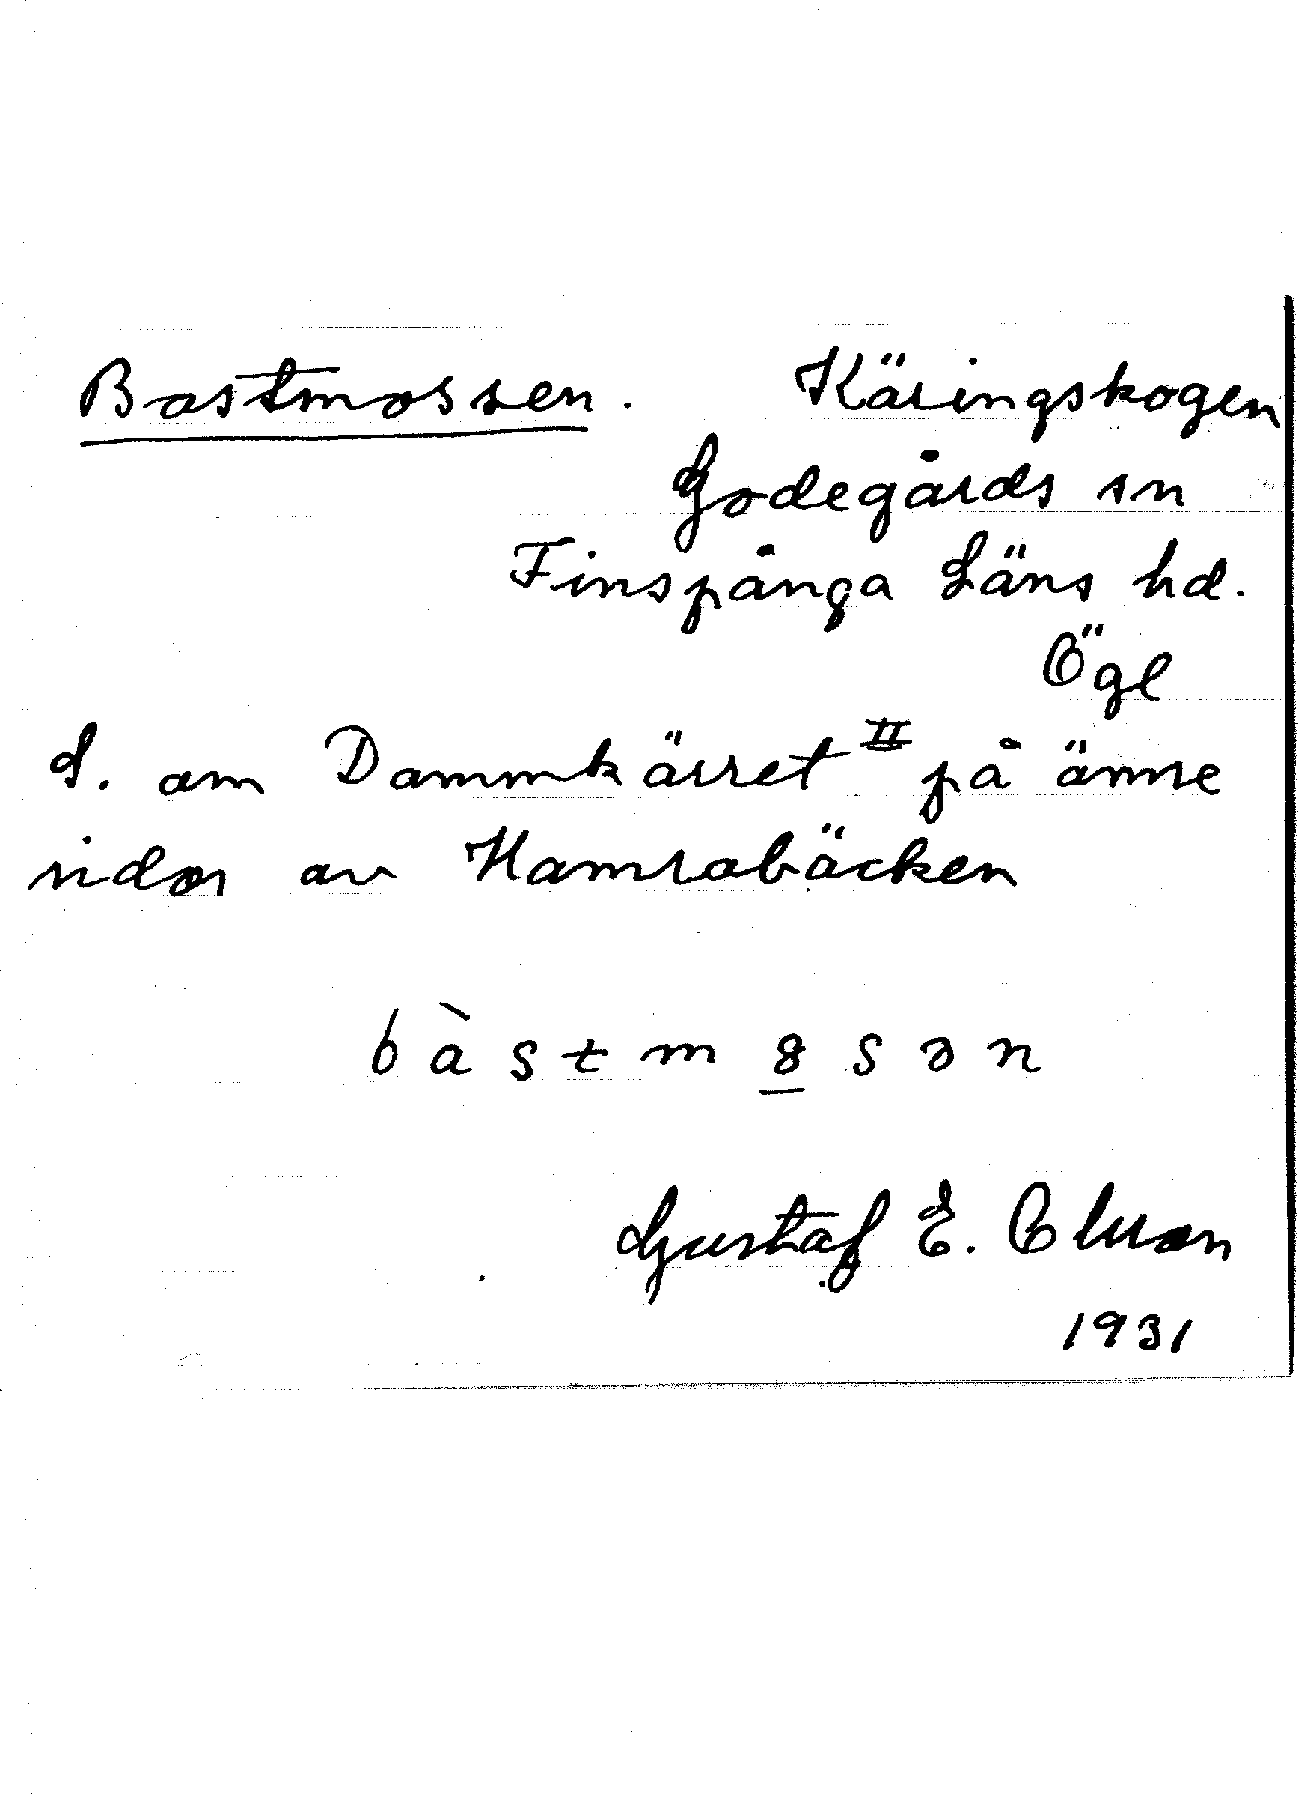 Bastmossen. Käringskogen
Godegårds sn
Finspånga Läns hd.
Ögl
S. om Dammkärret II på ömse
sidor av Hamrabäcken
bàstm8sən
Gustaf E.
1931